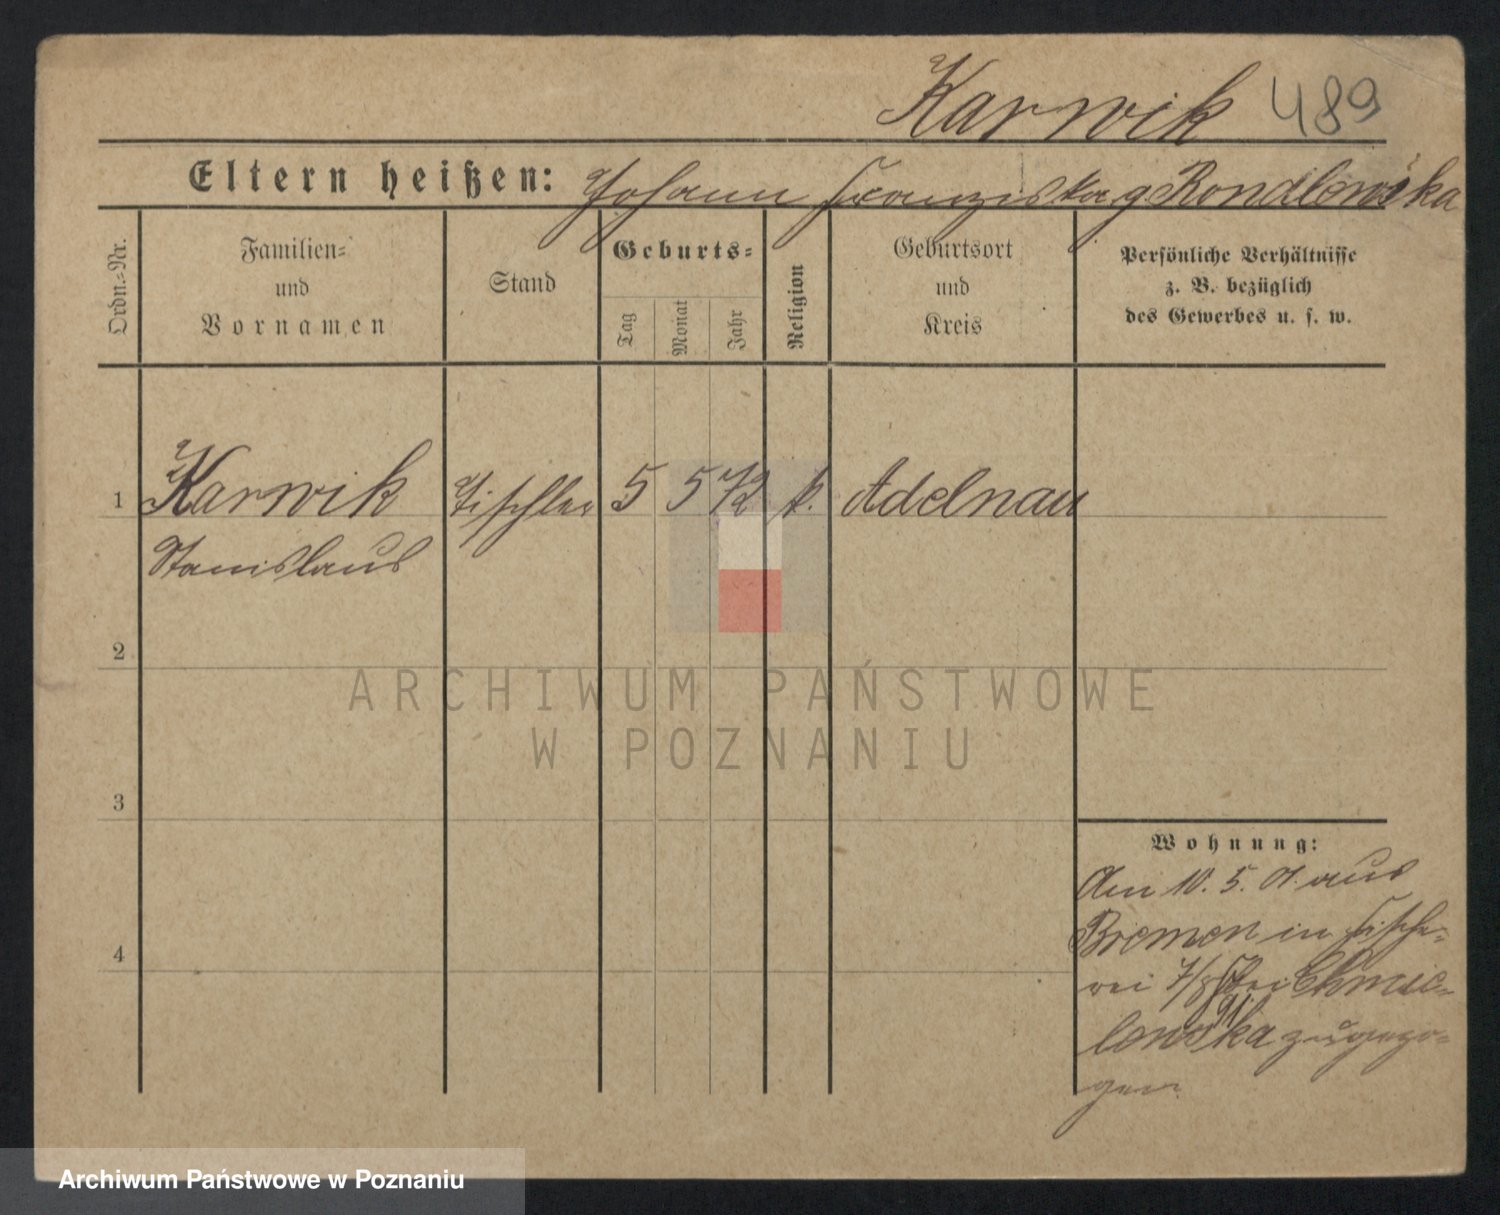 Karwik 489
Eltern heißen: Johann Franziska g Rondlewska
Ordn.=Nr.
Familien=
und
Vornamen
Stand
Geburts=
Tag
Monat
Jahr
Religion
Geburtsort
und
Kreis
Persönliche Verhältnisse
z. B. bezüglich
des Gewerbes u. s. w.
1 Karwik Tischler 5 5 72 k. Adelnau
Stanislaus
2
3
4
Wohnung:
Am 10. 5. 01. aus
Bremen in Fische=
rei 7/8 bei Chmie=
lewska zugezo=
gen.
ARCHIWUM PAŃSTWOWE
W POZNANIU
Archiwum Państwowe w Poznaniu